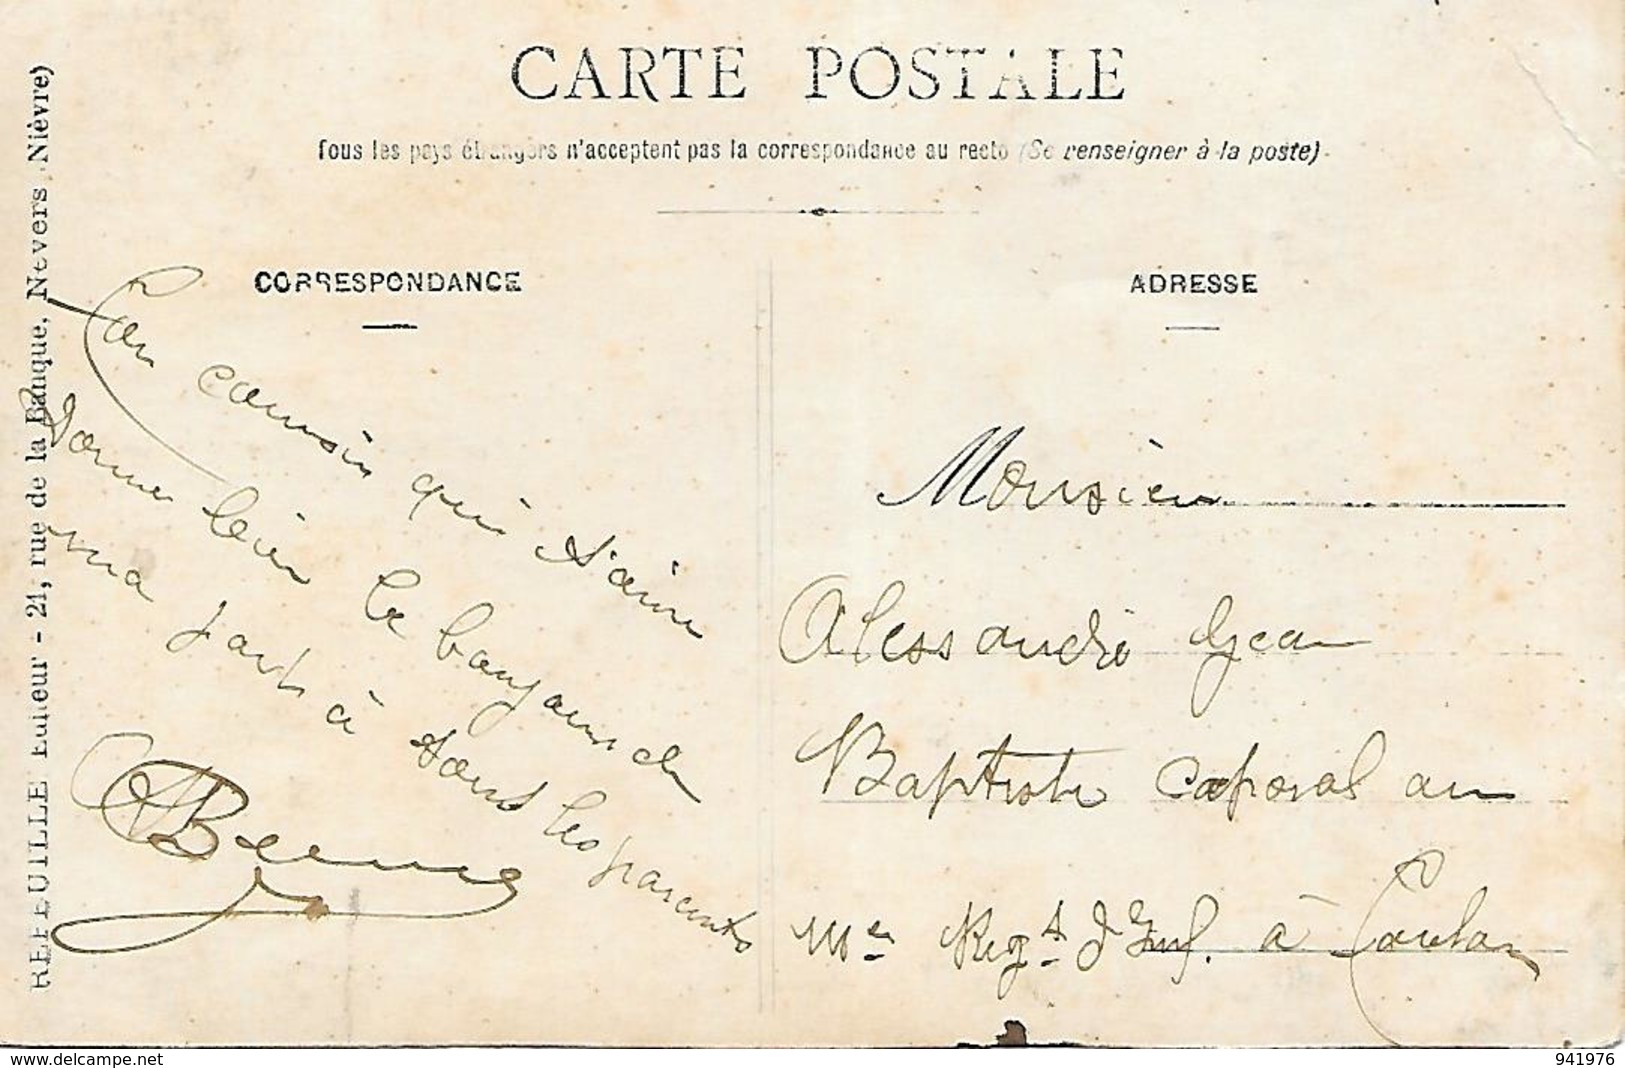 CARTE POSTALE
Tous les pays étrangers n'acceptent pas la correspondance au recto (Se renseigner à la poste)
CORRESPONDANCE
ADRESSE
REFEUILLE Editeur - 21, rue de la Banque, Nevers (Nièvre)
Ton cousin qui t'aime
Donne bien le bonjour de
ma part à tous les parents
Monsieur
Alessandri Jean
Baptiste caporal au
111e Regt d'Inf. à Toulon
www.delcampe.net
941976